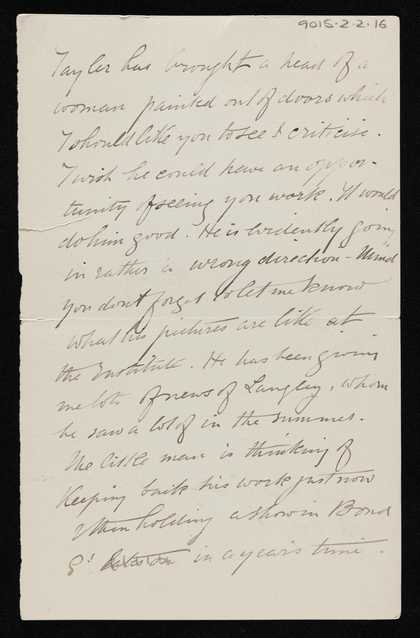 9015-2-2-16
Tayler has brought a head of a
woman painted out of doors which
I should like you to see & criticise.
I wish he could have an oppor-
tunity of seeing you work. It would
do him good. He is evidently going
in rather a wrong direction - Mind
you don't forget to let me know
what his pictures are like at
the Institute. He has been giving
me lots of news of Langley, whom
he saw a lot of in the summer.
The little man is thinking of
keeping back his work just now
& then holding a show in Bond
St in a year's time.